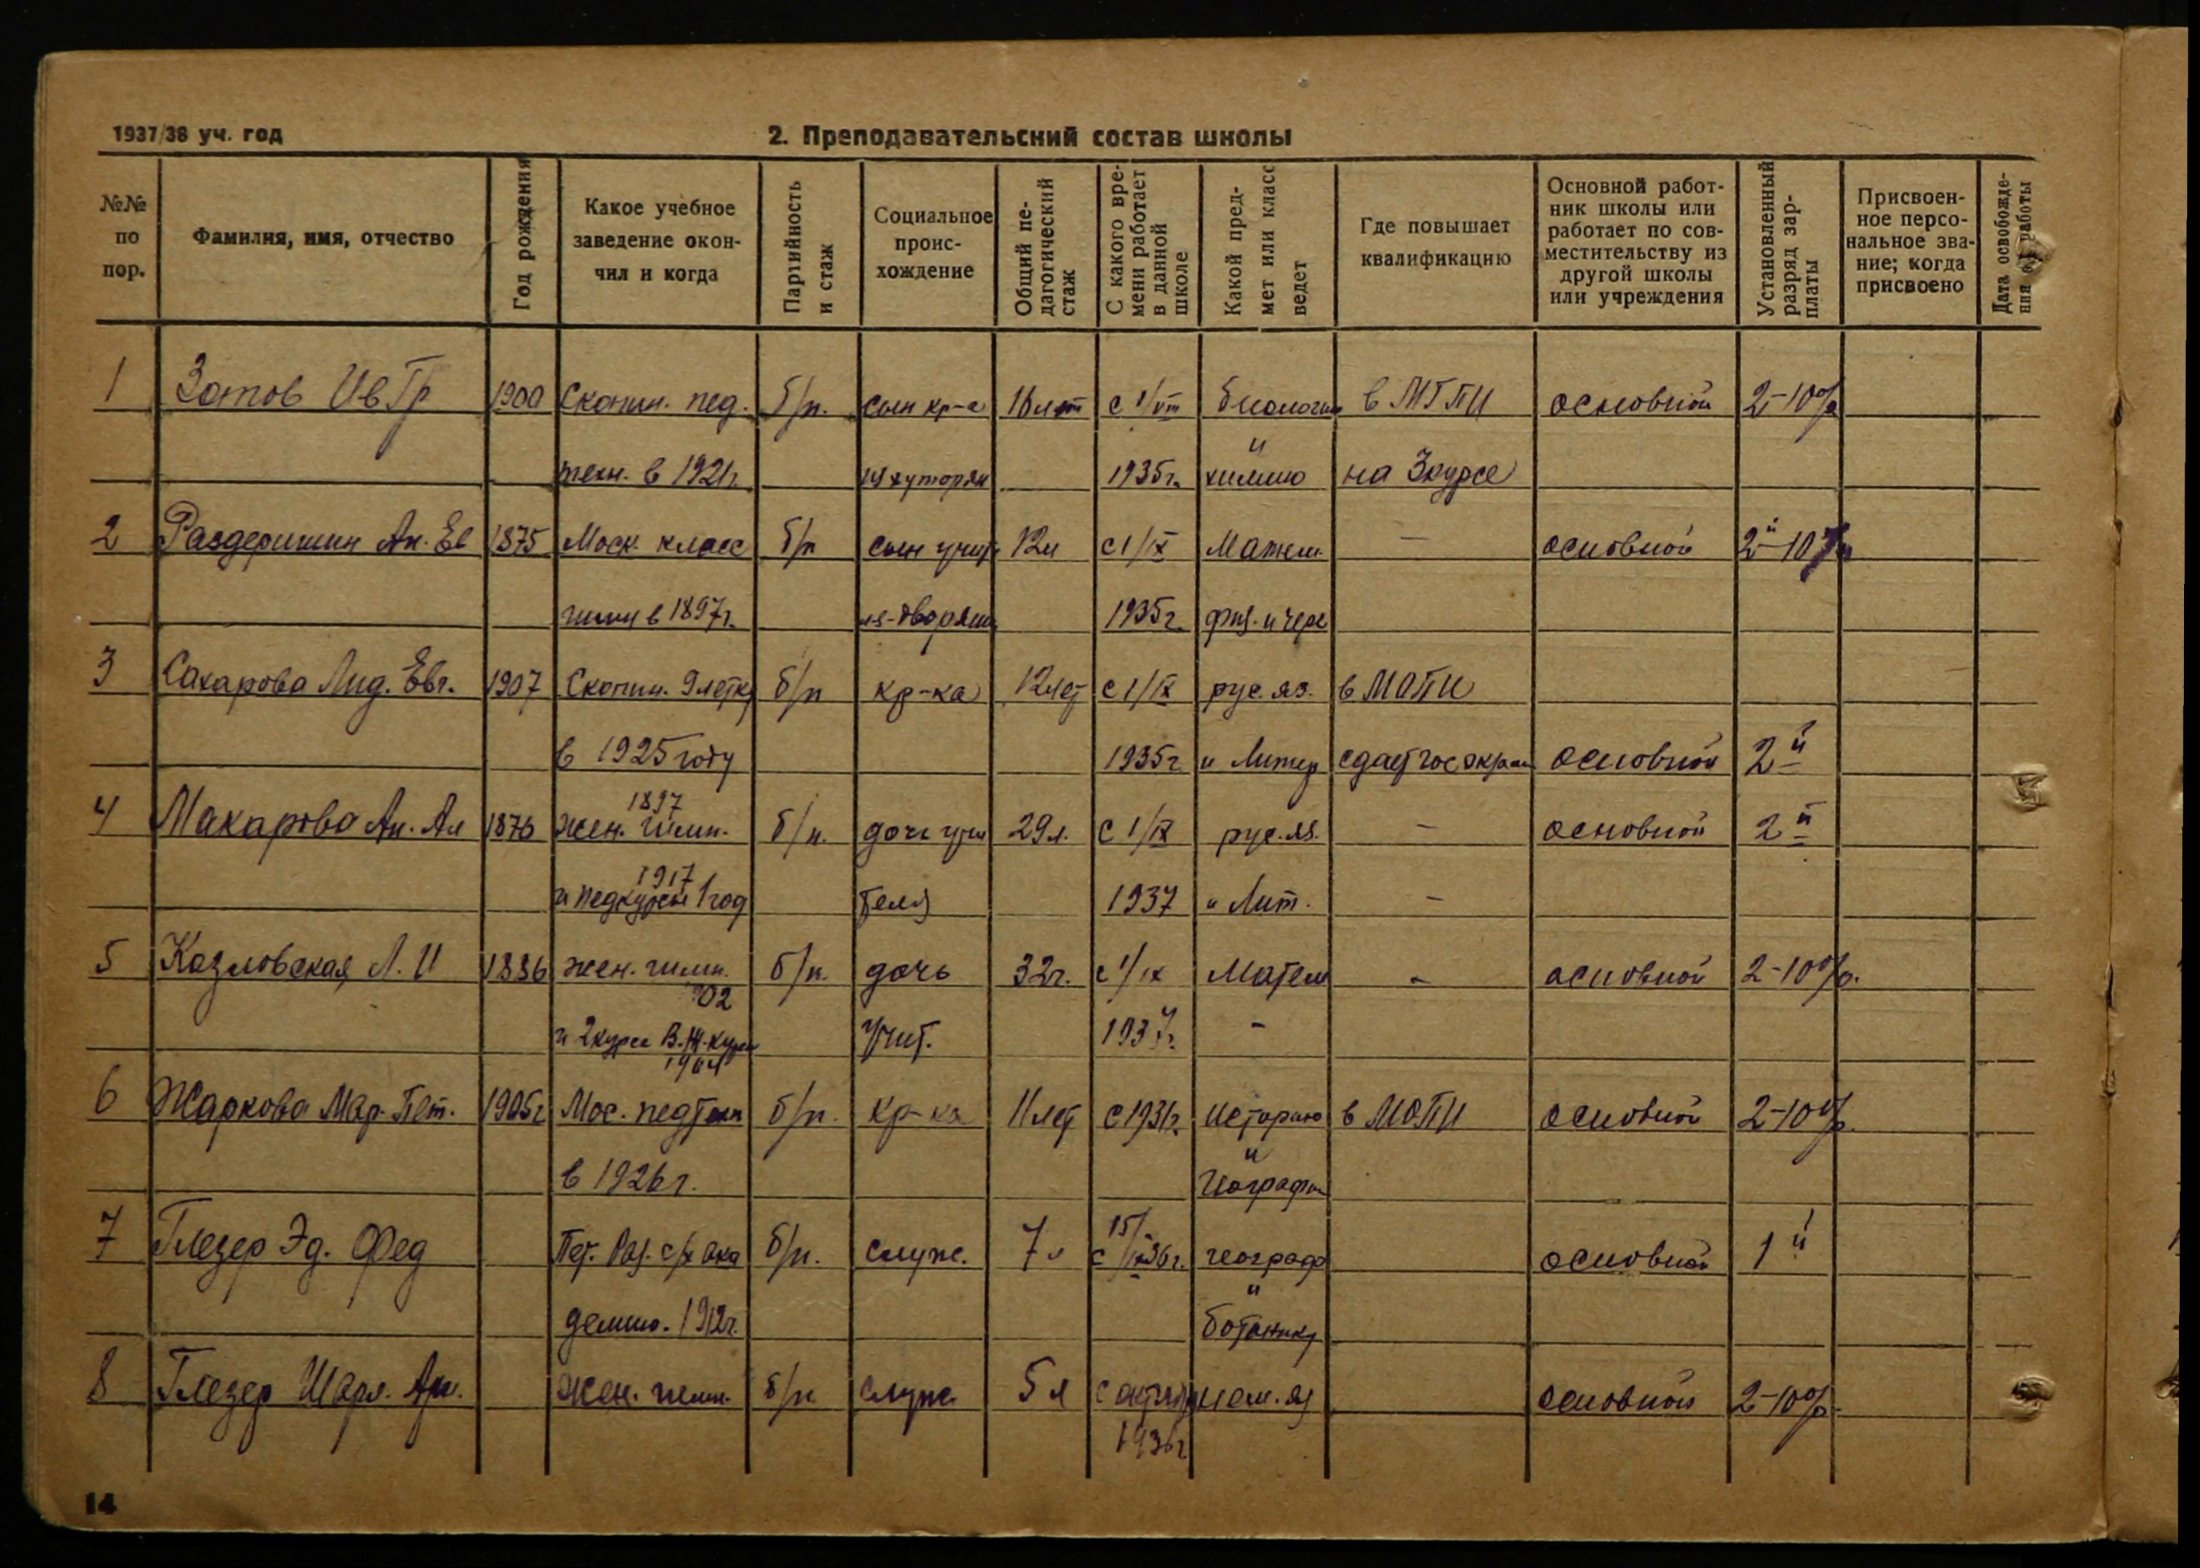 1937/38 уч. год
2. Преподавательский состав школы
№№ по пор.
Фамилия, имя, отчество
Год рождения
Какое учебное заведение окончил и когда
Партийность и стаж
Социальное происхождение
Общий педагогический стаж
С какого времени работает в данной школе
Какой предмет или класс ведет
Где повышает квалификацию
Основной работник школы или работает по совместительству из другой школы или учреждения
Установленный разряд зарплаты
Присвоенное персональное звание; когда присвоено
Дата освобождения работы
1 Зотов Ив Гр 1900 Скопин. пед. б/п. сын кр-а 16 лет с 1/VIII биологию в МГПИ основной 2-10%
техн. в 1921г. из хуторян 1935г. и химию на 3курсе
2 Раздеришин Ан. Ев 1875 Моск. класс б/п сын учит 12л с 1/IX Матем. — основной 2й-10%
гимн в 1897г. из-дворян 1935г. физ. и черч
3 Сахарова Лид. Евг. 1907 Скопин. 9летку б/п кр-ка 12лет с 1/IX рус. яз. в МОПИ
в 1925 году 1935г и Литер сдает госэкзам основной 2й
4 Макарова Ан. Ал 1876 жен. гимн. 1897 б/п. дочь учи 29л. с 1/IX рус. яз. — основной 2й
и педкурсы 1год 1917 теля 1937 и Лит. —
5 Козловская Л. И 1886 жен. гимн. б/п. дочь 32г. с 1/IX Матем - основной 2-10%.
02
и 2курса В.Ж.курс учит. 1937г. -
1904
6 Жаркова Мар. Пет. 1905г Мос. педтехн б/п. кр-ка 11лет с 1931г. Историю в МОПИ основной 2-10%.
в 1926г. и Географи
7 Глезер Эд. Фед Пет. Раз. с/х ака б/п. служ. 7л с 15/IX36г. географ основной 1й
демию. 1912г. и ботанику
8 Глезер Шарл. Ан. жен. гимн. б/п. служ. 5л с октяб нем. яз основной 2-10%.
1936г
14